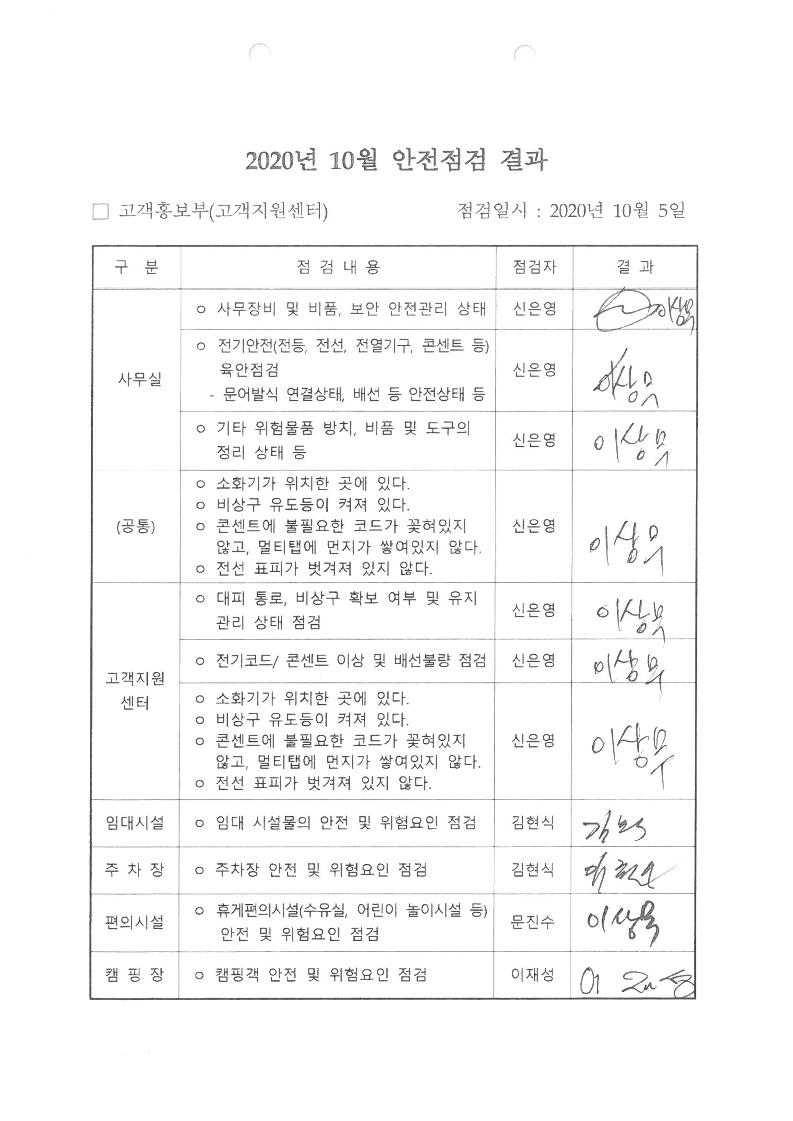 2020년 10월 안전점검 결과
□ 고객홍보부(고객지원센터) 점검일시 : 2020년 10월 5일
구 분 점 검 내 용 점검자 결 과
사무실
○ 사무장비 및 비품, 보안 안전관리 상태 신은영
○ 전기안전(전등, 전선, 전열기구, 콘센트 등)
육안점검 신은영
- 문어발식 연결상태, 배선 등 안전상태 등
○ 기타 위험물품 방치, 비품 및 도구의
정리 상태 등 신은영
(공통)
○ 소화기가 위치한 곳에 있다.
○ 비상구 유도등이 켜져 있다.
○ 콘센트에 불필요한 코드가 꽃혀있지 신은영
않고, 멀티탭에 먼지가 쌓여있지 않다.
○ 전선 표피가 벗겨져 있지 않다.
고객지원
센터
○ 대피 통로, 비상구 확보 여부 및 유지
관리 상태 점검 신은영
○ 전기코드/ 콘센트 이상 및 배선불량 점검 신은영
○ 소화기가 위치한 곳에 있다.
○ 비상구 유도등이 켜져 있다.
○ 콘센트에 불필요한 코드가 꽃혀있지 신은영
않고, 멀티탭에 먼지가 쌓여있지 않다.
○ 전선 표피가 벗겨져 있지 않다.
임대시설 ○ 임대 시설물의 안전 및 위험요인 점검 김현식
주 차 장 ○ 주차장 안전 및 위험요인 점검 김현식
편의시설 ○ 휴게편의시설(수유실, 어린이 놀이시설 등)
안전 및 위험요인 점검 문진수
캠 핑 장 ○ 캠핑객 안전 및 위험요인 점검 이재성